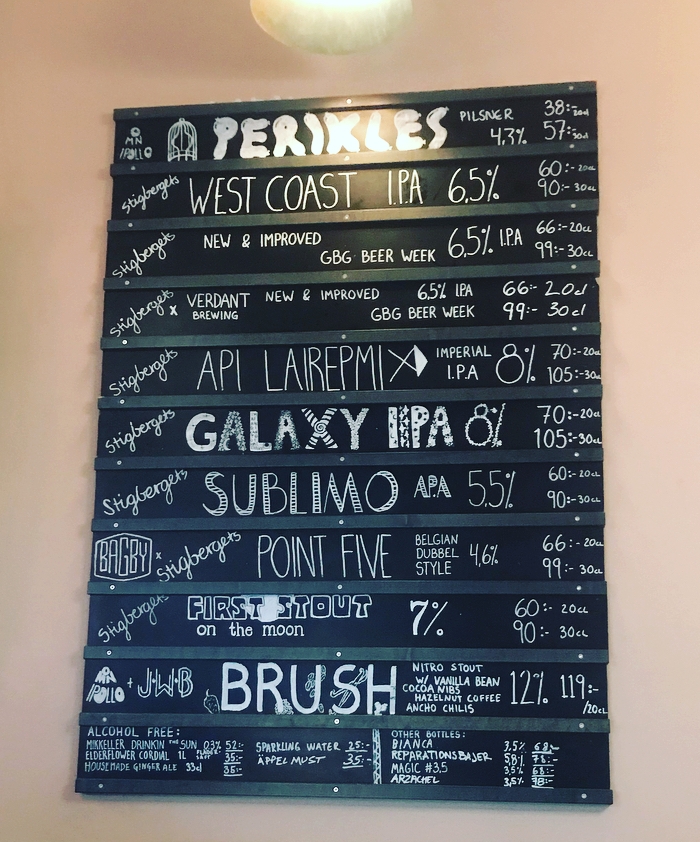 OMNIPOLLO PERIKLES PILSNER 4,3% 38:- 20cl
57:- 30cl
Stigbergets WEST COAST I.P.A 6,5% 60:- 20cl
90:- 30cl
Stigbergets NEW & IMPROVED 6,5% I.P.A 66:- 20cl
GBG BEER WEEK 99:- 30cl
Stigbergets x VERDANT NEW & IMPROVED 6,5% IPA 66:- 20cl
BREWING GBG BEER WEEK 99:- 30cl
Stigbergets API LAIREPMI IMPERIAL 8% 70:- 20cl
I.P.A 105:- 30cl
Stigbergets GALAXY IIPA 8% 70:- 20cl
105:- 30cl
Stigbergets SUBLIMO APA 5,5% 60:- 20cl
90:- 30cl
BAGBY x Stigbergets POINT FIVE BELGIAN 4,6% 66:- 20cl
DUBBEL
STYLE 99:- 30cl
Stigbergets FIRST STOUT 7% 60:- 20cl
on the moon 90:- 30cl
OMNIPOLLO + J.W.B BRUSH NITRO STOUT 12% 119:-
W/ VANILLA BEAN /20cl
COCOA NIBS
HAZELNUT COFFEE
ANCHO CHILIS
ALCOHOL FREE:
MIKKELLER DRINKIN THE SUN 0,3% 52:-
ELDERFLOWER CORDIAL 1L 35:-
HOUSEMADE GINGER ALE 33cl 35:-
SPARKLING WATER 25:-
ÄPPELMUST 35:-
OTHER BOTTLES:
BIANCA 3,5% 68:-
REPARATIONSBAJER 5,8% 78:-
MAGIC #3,5 3,5% 68:-
ARZACHEL 3,5% 78:-